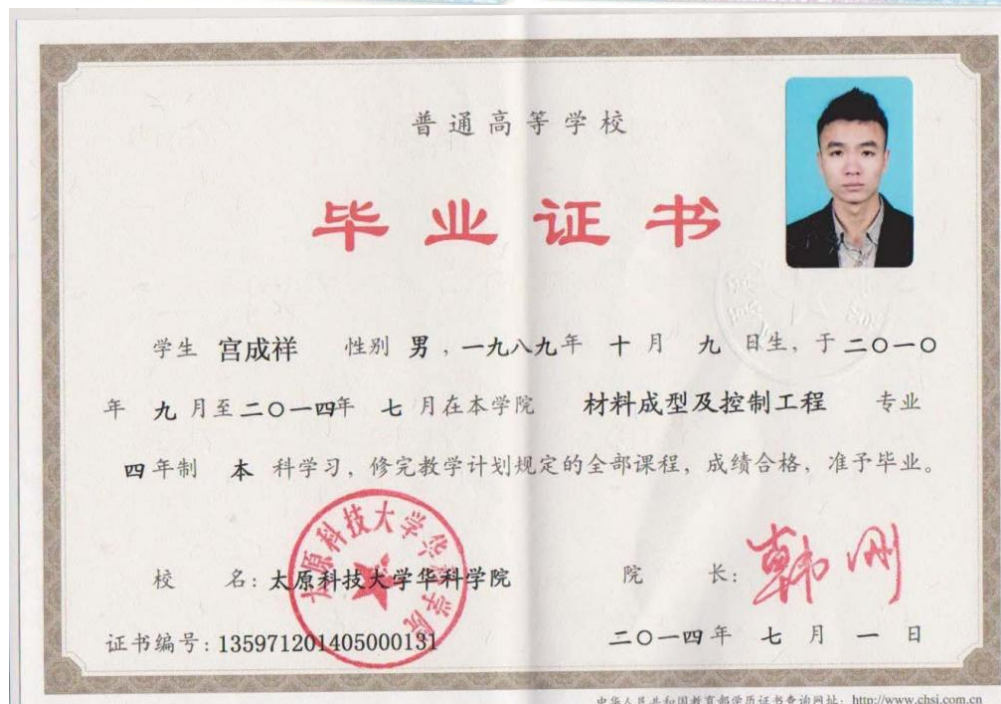 普通高等学校
毕业证书
学生 宫成祥 性别 男，一九八九年 十 月 九 日生，于二〇一〇
年 九 月至二〇一四年 七 月在本学院 材料成型及控制工程 专业
四年制 本 科学习，修完教学计划规定的全部课程，成绩合格，准予毕业。
校 名：太原科技大学华科学院 院 长：韩刚
太原科技大学华科学院
证书编号：135971201405000131 二〇一四年 七 月 一 日
中华人民共和国教育部学历证书查询网址：http://www.chsi.com.cn